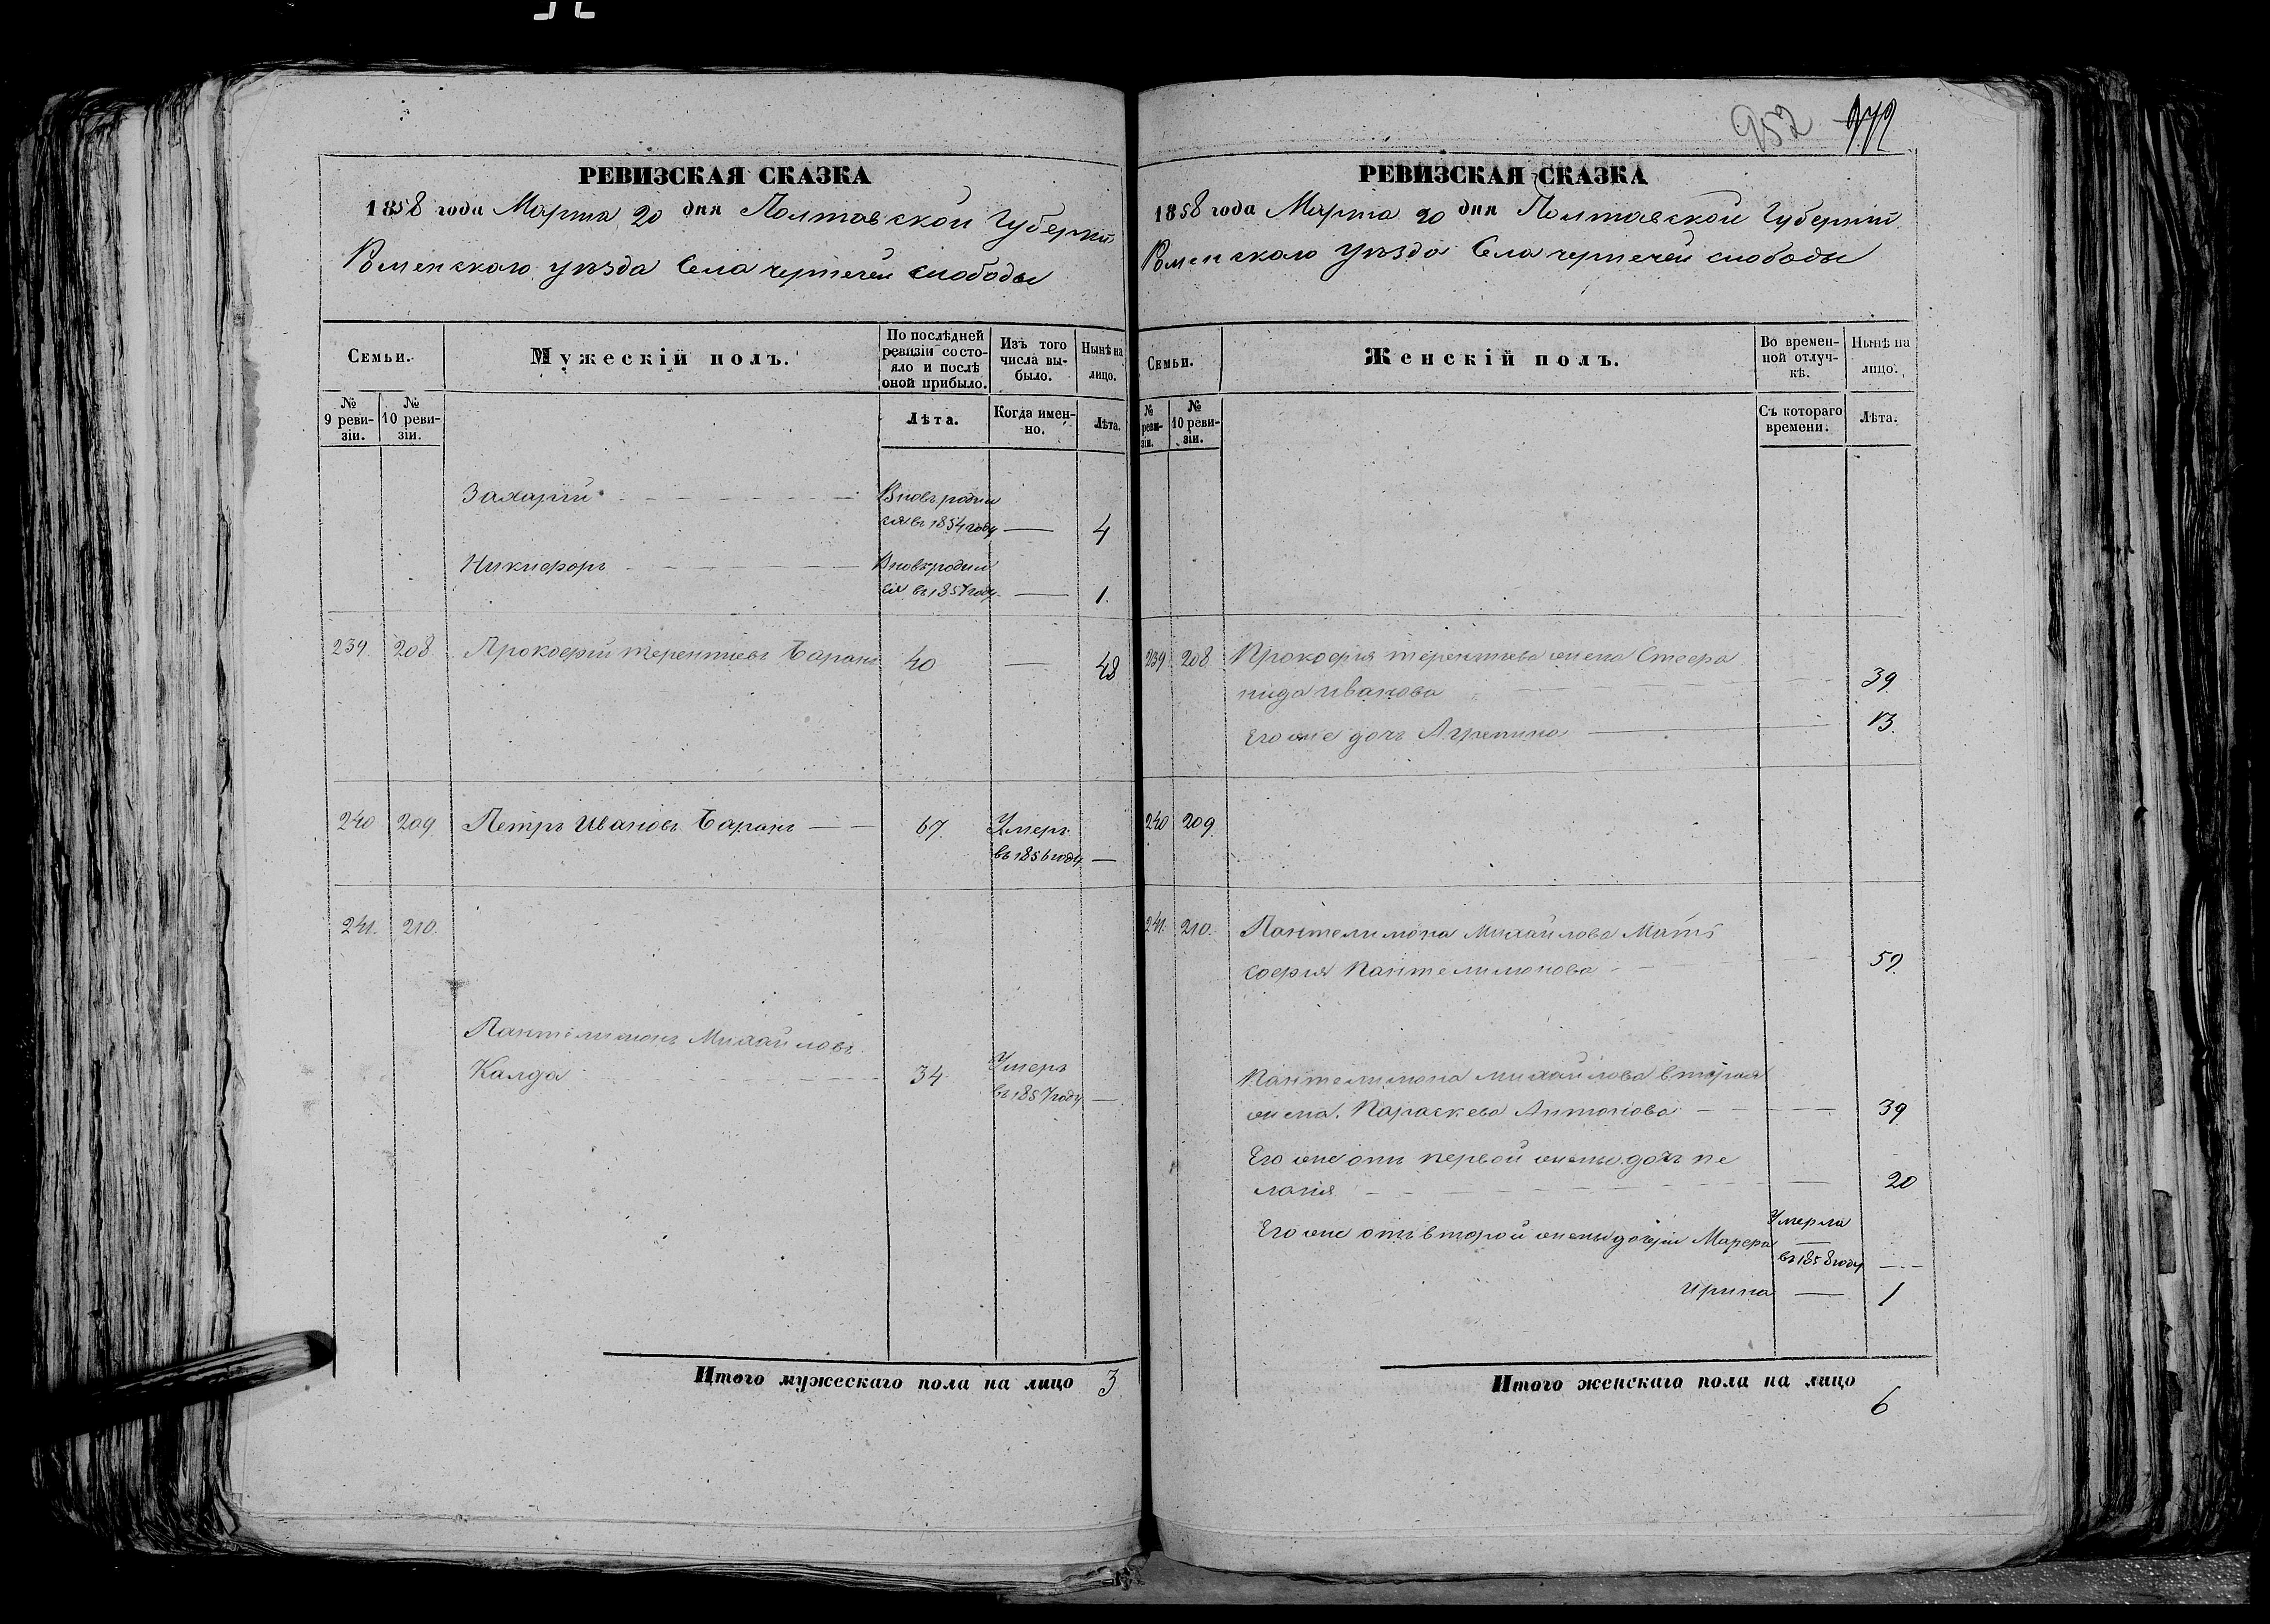 952 972
РЕВИЗСКАЯ СКАЗКА
1858 года Марта 20 дня Полтавской Губернии
Роменского уѣзда Села чертечей слободы
Семьи.
Мужескій полъ.
По послѣдней ревизіи состояло и послѣ оной прибыло.
Изъ того числа выбыло.
Нынѣ на лицо.
№ 9 ревизіи.
№ 10 ревизіи.
Лѣта.
Когда именно.
Лѣта.
Захарій Вновь родил
ся въ 1854 году — 4
Никифоръ Вновь родил
ся въ 1857 году — 1.
239 208 Прокофій терентиевъ Баранъ 40 — 48
240 209 Петръ Ивановъ Баранъ 67 Умеръ
въ 1856 году —
241. 210.
Пантелимонъ Михайловъ
Калда 34 Умеръ
въ 1857 году —
Итого мужескаго пола на лицо 3
РЕВИЗСКАЯ СКАЗКА
1858 года Марта 20 дня Полтавской Губерніи
Роменского уѣзда Села чертечей слободы
Семьи.
Женскій полъ.
Во временной отлучкѣ.
Нынѣ на лицо.
№ реви-зіи.
№ 10 ревизіи.
Съ котораго времени.
Лѣта.
239 208 Прокофия терентиева жена Стефа
нида иванова 39
Его же дочь Агрипина 13.
240 209.
241. 210. Пантелимона Михайлова Мать
софия Пантелимонова 59.
Пантелимона михайлова вторая
жена. Параскева Антонова 39
Его же отъ первой жены дочь пе
лагия 20
Его же отъ второй жены дочери Марфа Умерла
въ 1858 году —
ирина — 1
Итого женскаго пола на лицо
6